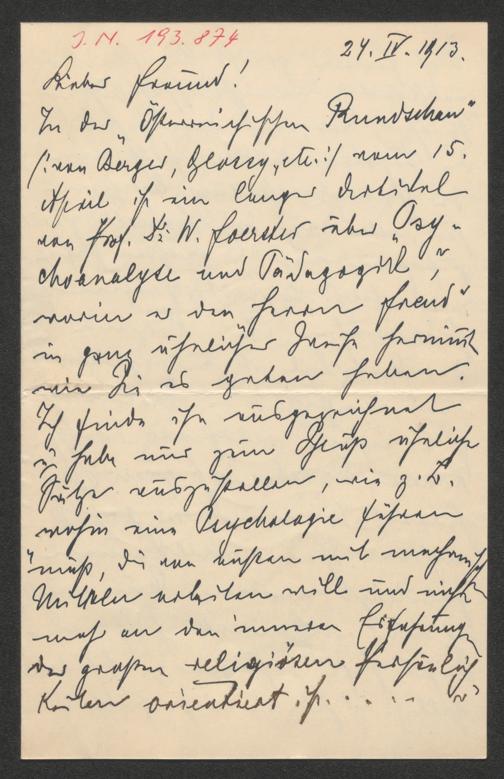 I.N. 193.874
24. IV. 1913.
Lieber Freund!
In der „Österreichischen Rundschau“
/: von Berger, Glossy, etc. :/ vom 15.
April ist ein langer Artikel
von Prof. Dr. W. Foerster über „Psy-
choanalyse und Pädagogik“,
worin er den Herrn „Freud“
in ganz ähnlicher Weise hernimmt
wie Sie es getan haben.
Ich finde ihn ausgezeichnet
u habe nur zum Schluß ähnliche
Sätze auszustellen, wie z. B.
wohin eine Psychologie führen
„muß, die von außen mit mechanischen
Mitteln arbeiten will und nicht
mehr an den inneren Erfahrungen
der großen religiösen Persönlich
keiten orientiert ist. . . . . “